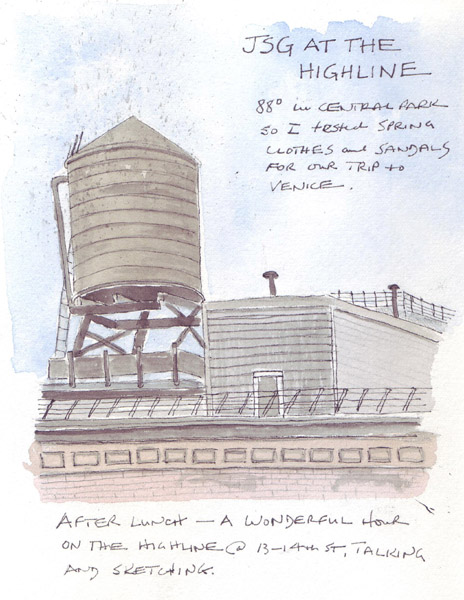 JSG AT THE
HIGHLINE
88° in CENTRAL PARK
SO I tested SPRING
CLOTHES and SANDALS
FOR OUR TRIP to
VENICE.
AFTER LUNCH — A WONDERFUL HOUR
ON THE HIGHLINE @ 13-14th ST, TALKING
AND SKETCHING.